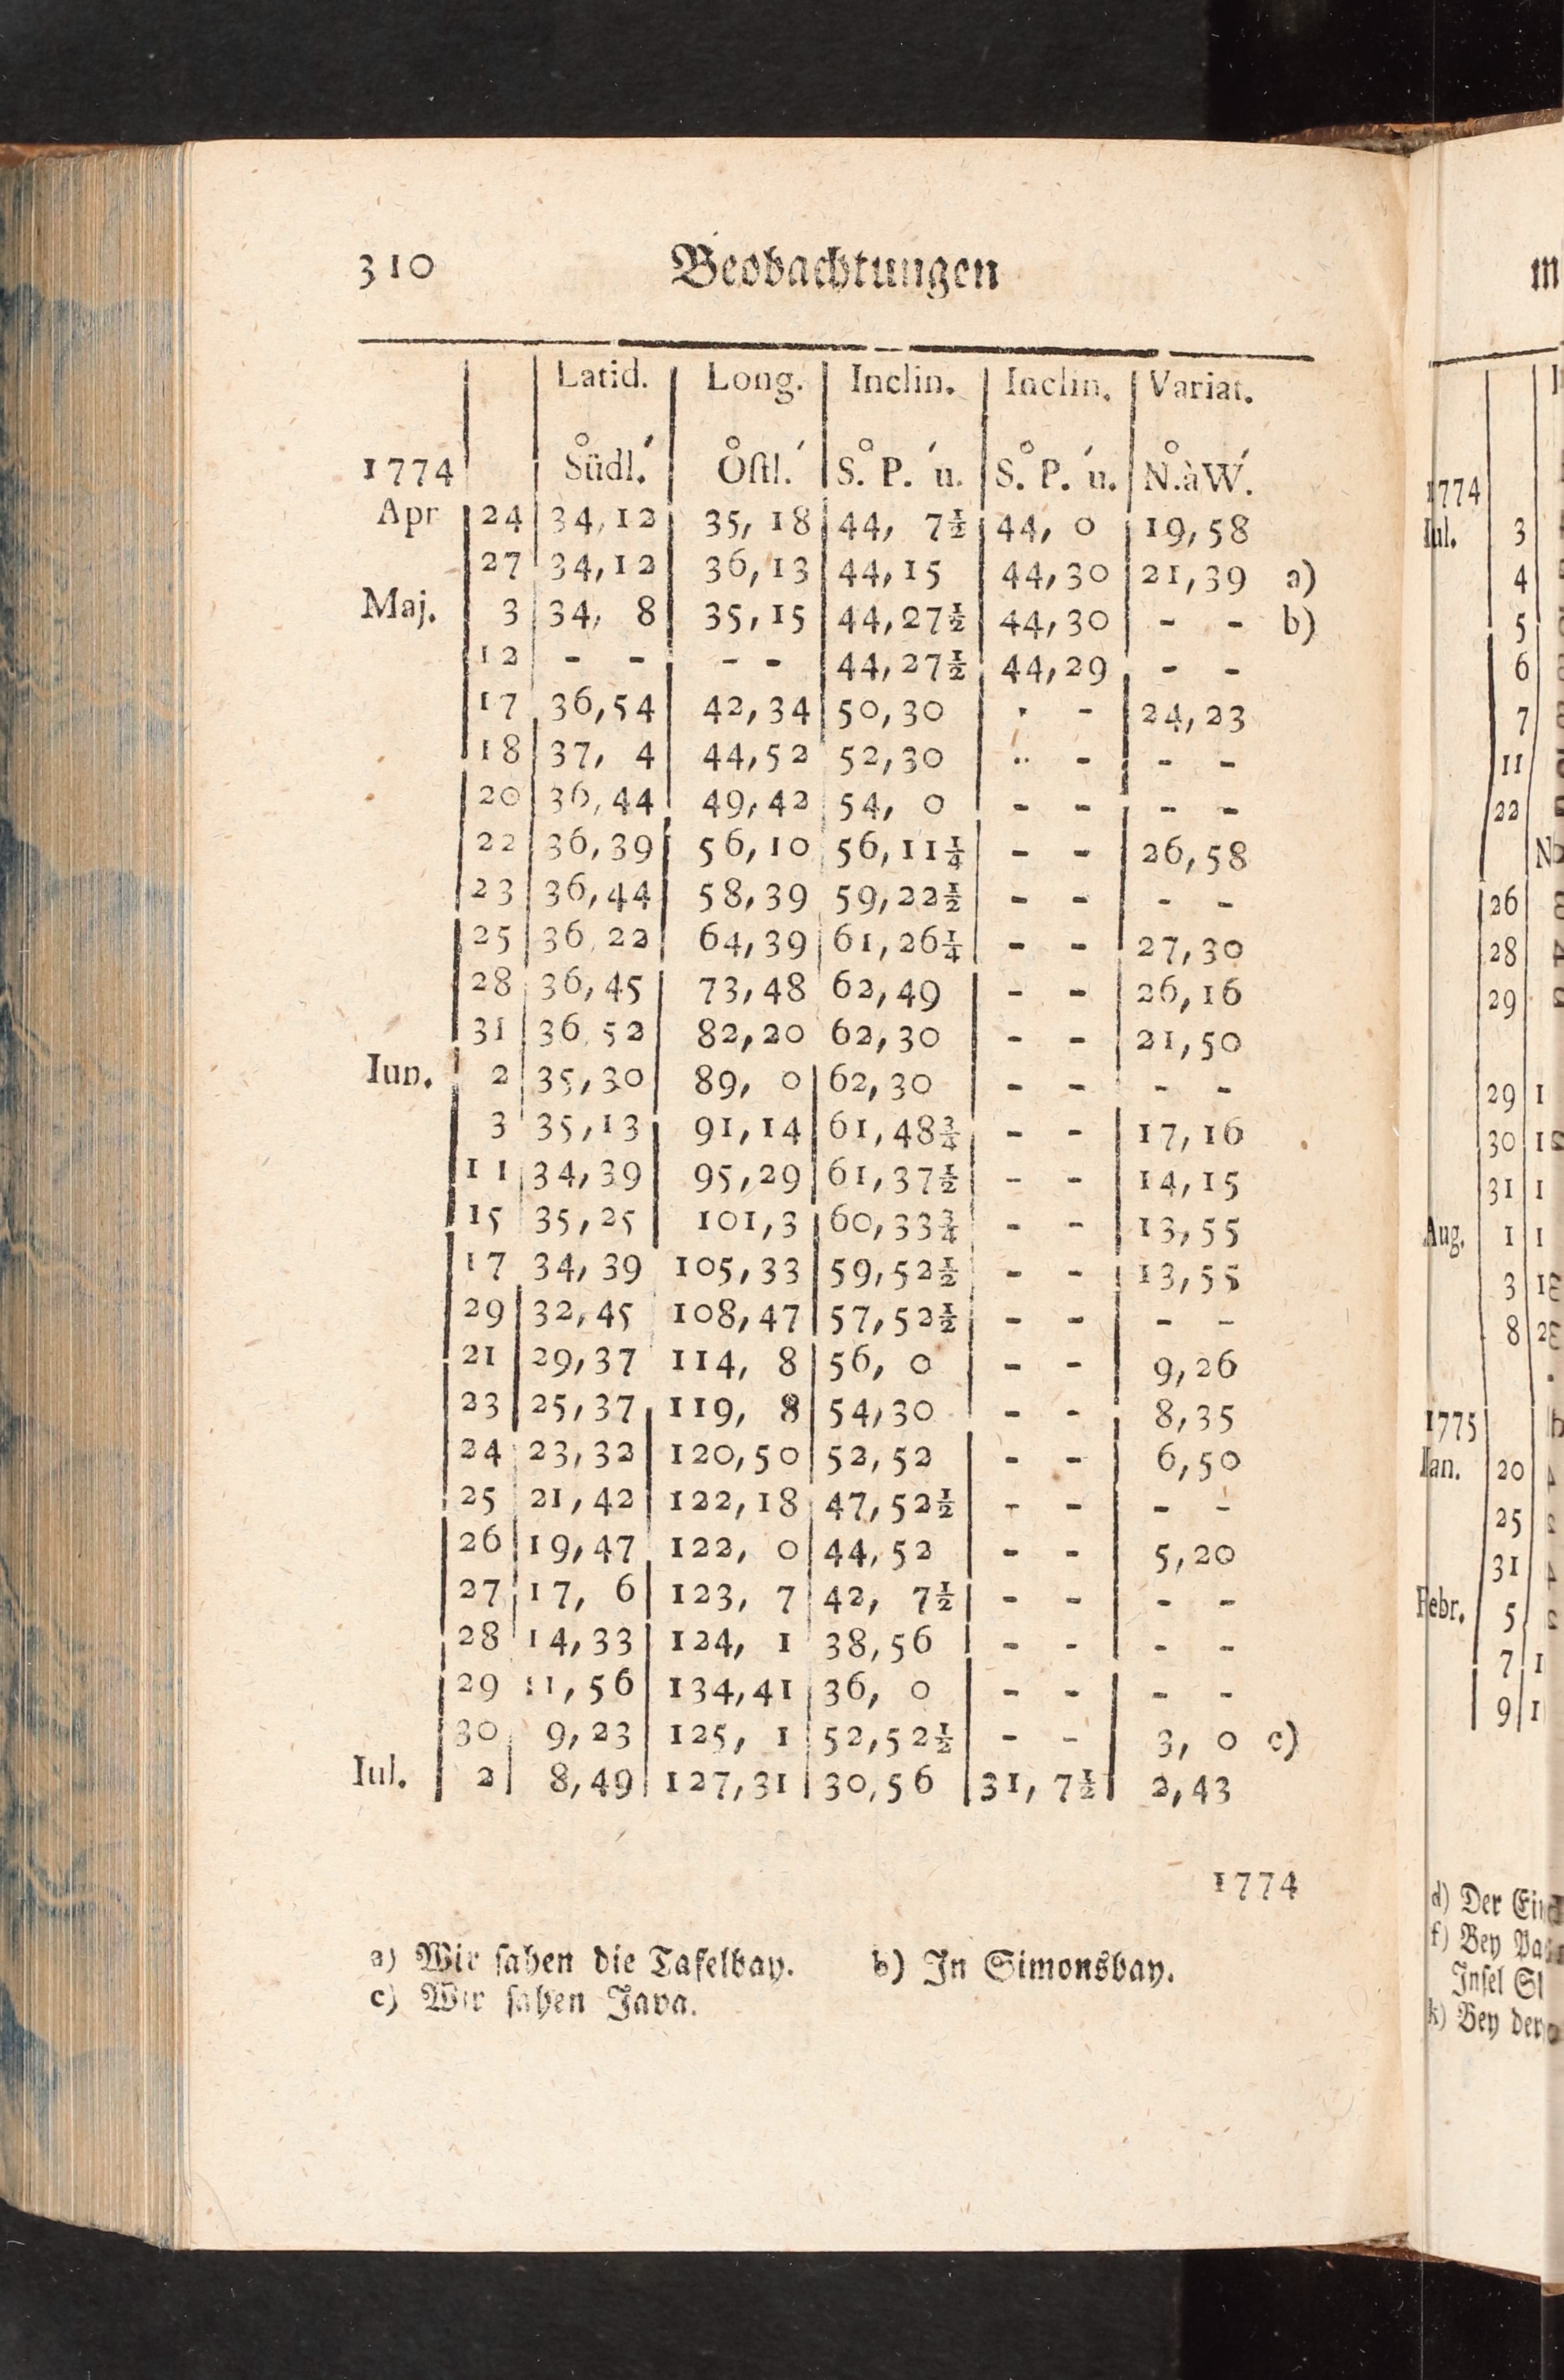 310 Beobachtungen
Latid. | Long. | Inclin. | Inclin. | Variat.
1774 | Südl. | Oſtl. | S. P. u. | S. P. u. | N.àW.
Apr | 24 | 34,12 | 35, 18 | 44, 7½ | 44, 0 | 19,58
27 | 34,12 | 36,13 | 44,15 | 44,30 | 21,39 a)
Maj. | 3 | 34, 8 | 35,15 | 44,27½ | 44,30 | - - b)
12 | - - | - - | 44,27½ | 44,29 | - -
17 | 36,54 | 42,34 | 50,30 | - - | 24,23
18 | 37, 4 | 44,52 | 52,30 | - - | - -
20 | 36,44 | 49,42 | 54, 0 | - - | - -
22 | 36,39 | 56,10 | 56,11¼ | - - | 26,58
23 | 36,44 | 58,39 | 59,22½ | - - | - -
25 | 36,22 | 64,39 | 61,26¼ | - - | 27,30
28 | 36,45 | 73,48 | 62,49 | - - | 26,16
31 | 36,52 | 82,20 | 62,30 | - - | 21,50
Iun. | 2 | 35,30 | 89, 0 | 62,30 | - - | - -
3 | 35,13 | 91,14 | 61,48¾ | - - | 17,16
11 | 34,39 | 95,29 | 61,37½ | - - | 14,15
15 | 35,25 | 101,3 | 60,33¾ | - - | 13,55
17 | 34,39 | 105,33 | 59,52½ | - - | 13,55
29 | 32,45 | 108,47 | 57,52½ | - - | - -
21 | 29,37 | 114, 8 | 56, 0 | - - | 9,26
23 | 25,37 | 119, 8 | 54,30 | - - | 8,35
24 | 23,32 | 120,50 | 52,52 | - - | 6,50
25 | 21,42 | 122,18 | 47,52½ | - - | - -
26 | 19,47 | 122, 0 | 44,52 | - - | 5,20
27 | 17, 6 | 123, 7 | 42, 7½ | - - | - -
28 | 14,33 | 124, 1 | 38,56 | - - | - -
29 | 11,56 | 134,41 | 36, 0 | - - | - -
30 | 9,23 | 125, 1 | 52,52½ | - - | 3, 0 c)
Iul. | 2 | 8,49 | 127,31 | 30,56 | 31, 7½ | 2,43
1774
a) Wir ſahen die Tafelbay. b) In Simonsbay.
c) Wir ſahen Java.
1774
Iul. 3
4
5
6
7
11
22
26
28
29
29
30
31
Aug. 1
3
8
1775
Ian. 20
25
31
Febr. 5
7
9
d) Der
f) Bey
Inſel
k) Bey der